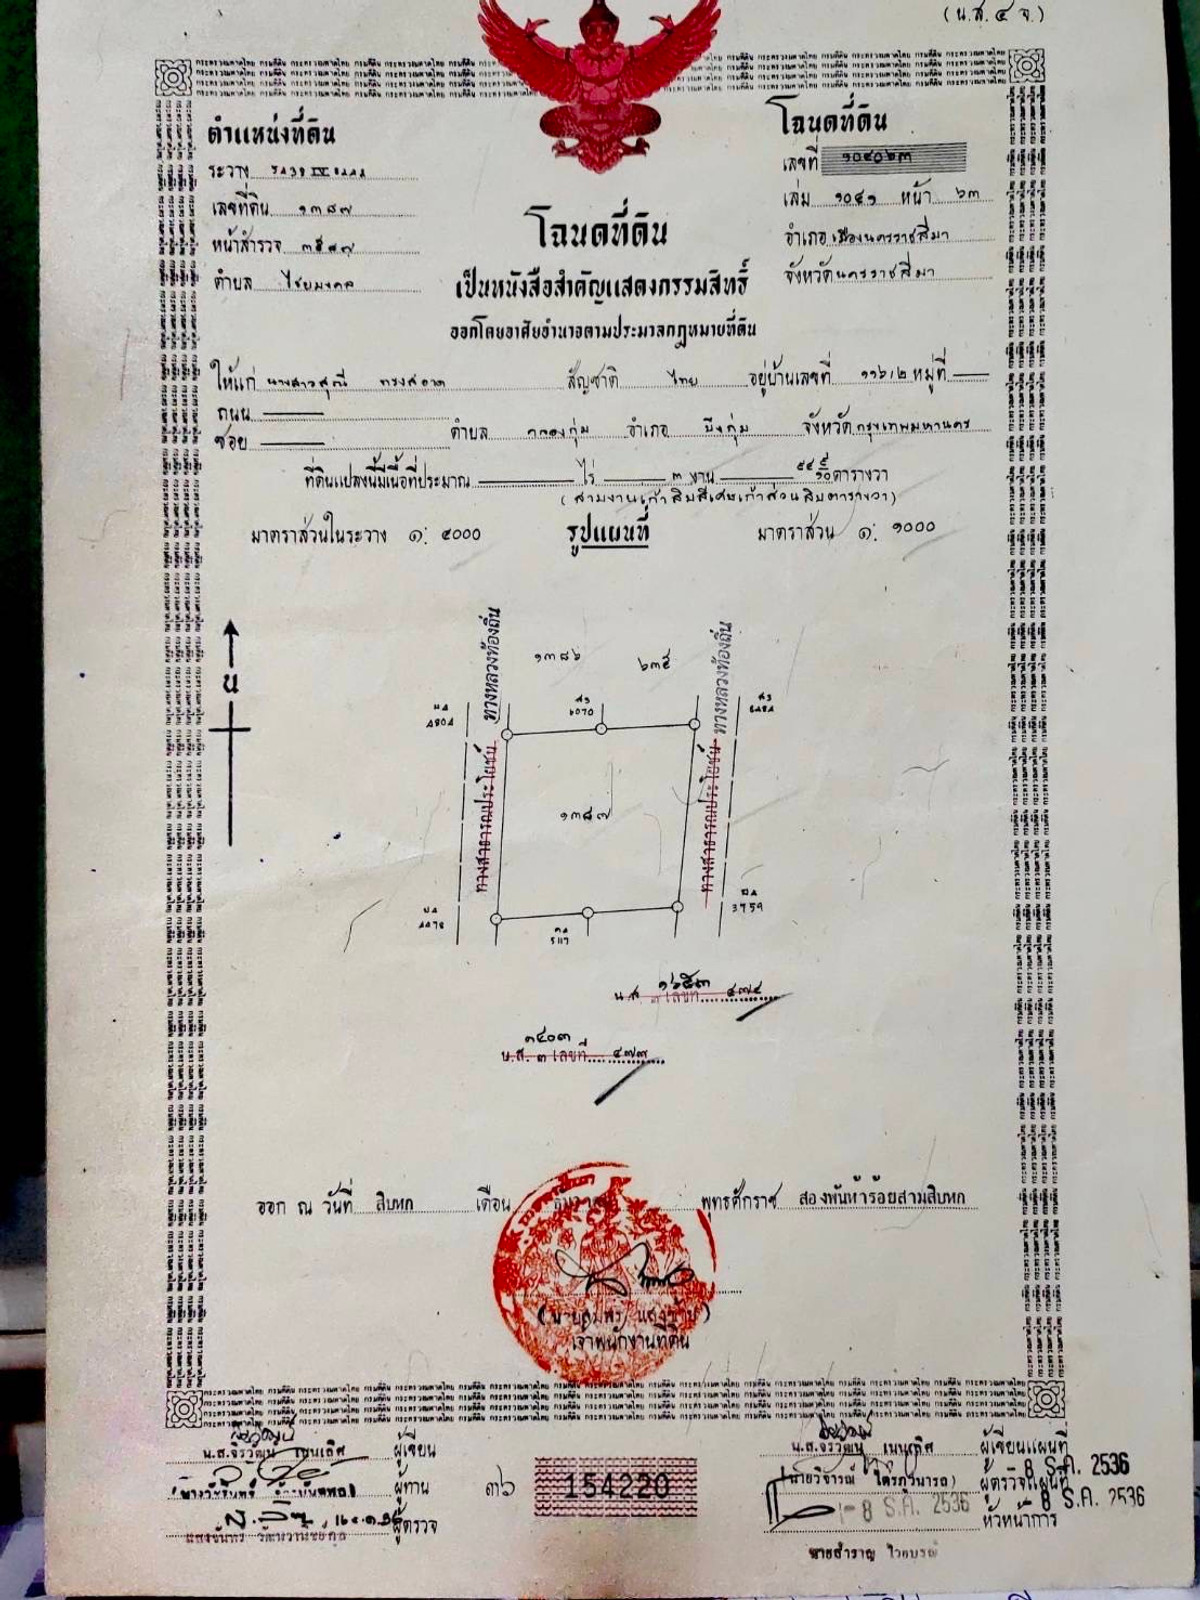 (น.ส.๔ จ.)
ตำแหน่งที่ดิน
ระวาง
เลขที่ดิน ๑๓๘๗
หน้าสำรวจ ๓๕๘๗
ตำบล ไชยมงคล
โฉนดที่ดิน
เลขที่ ๑๐๔๐๖๓
เล่ม ๑๐๔๑ หน้า ๖๓
อำเภอ เมืองนครราชสีมา
จังหวัด นครราชสีมา
โฉนดที่ดิน
เป็นหนังสือสำคัญแสดงกรรมสิทธิ์
ออกโดยอาศัยอำนาจตามประมวลกฎหมายที่ดิน
ให้แก่ นางสาวสุณี ทรงสอาด สัญชาติ ไทย อยู่บ้านเลขที่ ๑๑๖/๒ หมู่ที่
ถนน
ซอย ตำบล คลองกุ่ม อำเภอ บึงกุ่ม จังหวัด กรุงเทพมหานคร
ที่ดินแปลงนี้มีเนื้อที่ประมาณ ไร่ ๓ งาน ๙๔ ๙/๑๐ ตารางวา
(สามงานเก้าสิบสี่เศษเก้าส่วนสิบตารางวา)
มาตราส่วนในระวาง ๑: ๔๐๐๐ รูปแผนที่ มาตราส่วน ๑: ๑๐๐๐
ทางหลวงท้องถิ่น
ทางสาธารณประโยชน์
๑๓๘๖ ๖๓๕
ทางหลวงท้องถิ่น
ทางสาธารณประโยชน์
น
6070
๑๓๘๗
3759
น.ส. ๓ เลขที่ ๔๗๔
๓๔๐๓
น.ส. ๓ เลขที่ ๔๗๓
ออก ณ วันที่ สิบหก เดือน ธันวาคม พุทธศักราช สองพันห้าร้อยสามสิบหก
เจ้าพนักงานที่ดิน
น.ส.จิรวัฒน์ เนนเลิศ ผู้เขียน
ผู้ทาน
ผู้ตรวจ
๓๖ 154220
น.ส.จิรวัฒน์ เนนเลิศ ผู้เขียนแผนที่
(นายวิจารณ์ ไตรภูวนารถ) ผู้ตรวจแผนที่ - 8 ธ.ค. 2536
- 8 ธ.ค. 2536 หัวหน้าการ - 8 ธ.ค. 2536
นายสำราญ ไวยบรณ์